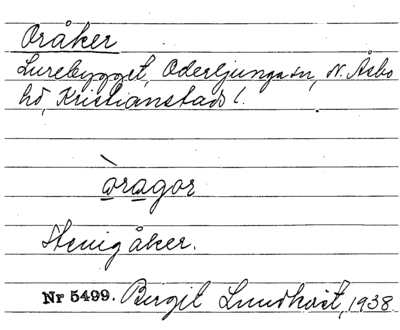 Oråker
Lurebygget, Oderljunga sn, N. Åsbo
hd, Kristianstads l.
òragor
Stenig åker.
Nr 5499. Birgit Lundkvist, 1938.